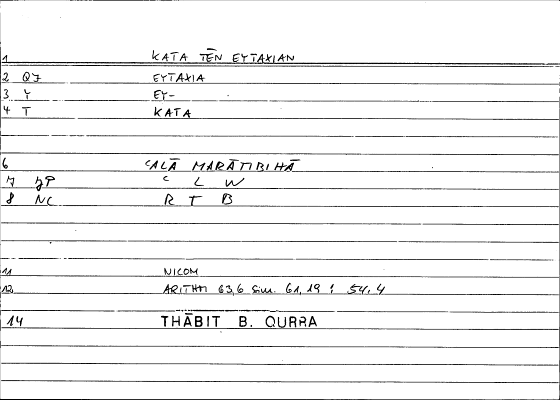 1 KATA TĒN EYTAXIAN
2 QJ EYTAXIA
3 Y EY-
4 T KATA
6 ʿALĀ MARĀTIBIHĀ
7 JP ʿ L W
8 NC R T B
11 NICOM
12 ARITHM 63,6 Sim. 61,19 : 54,4
14 THĀBIT B. QURRA